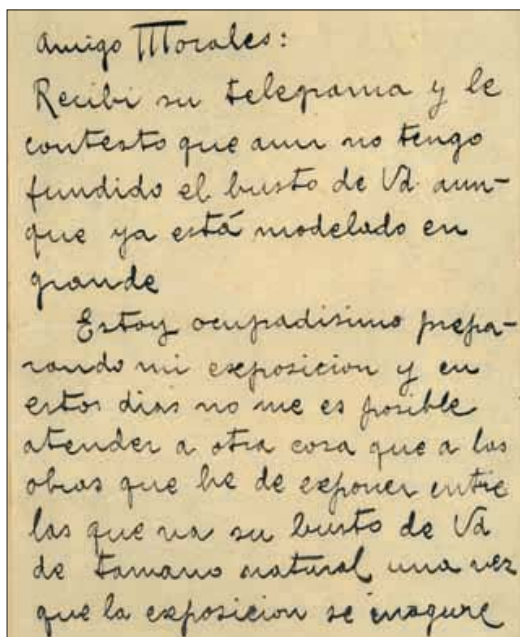 Amigo Morales:
Recibi su telegrama y le
contesto que aun no tengo
fundido el busto de Vd. aun-
que ya está modelado en
grande
Estoy ocupadisimo prepa-
rando mi exposicion y en
estos dias no me es posible
atender a otra cosa que a las
obras que he de exponer entre
las que va su busto de Vd
de tamano natural una vez
que la exposicion se inagure